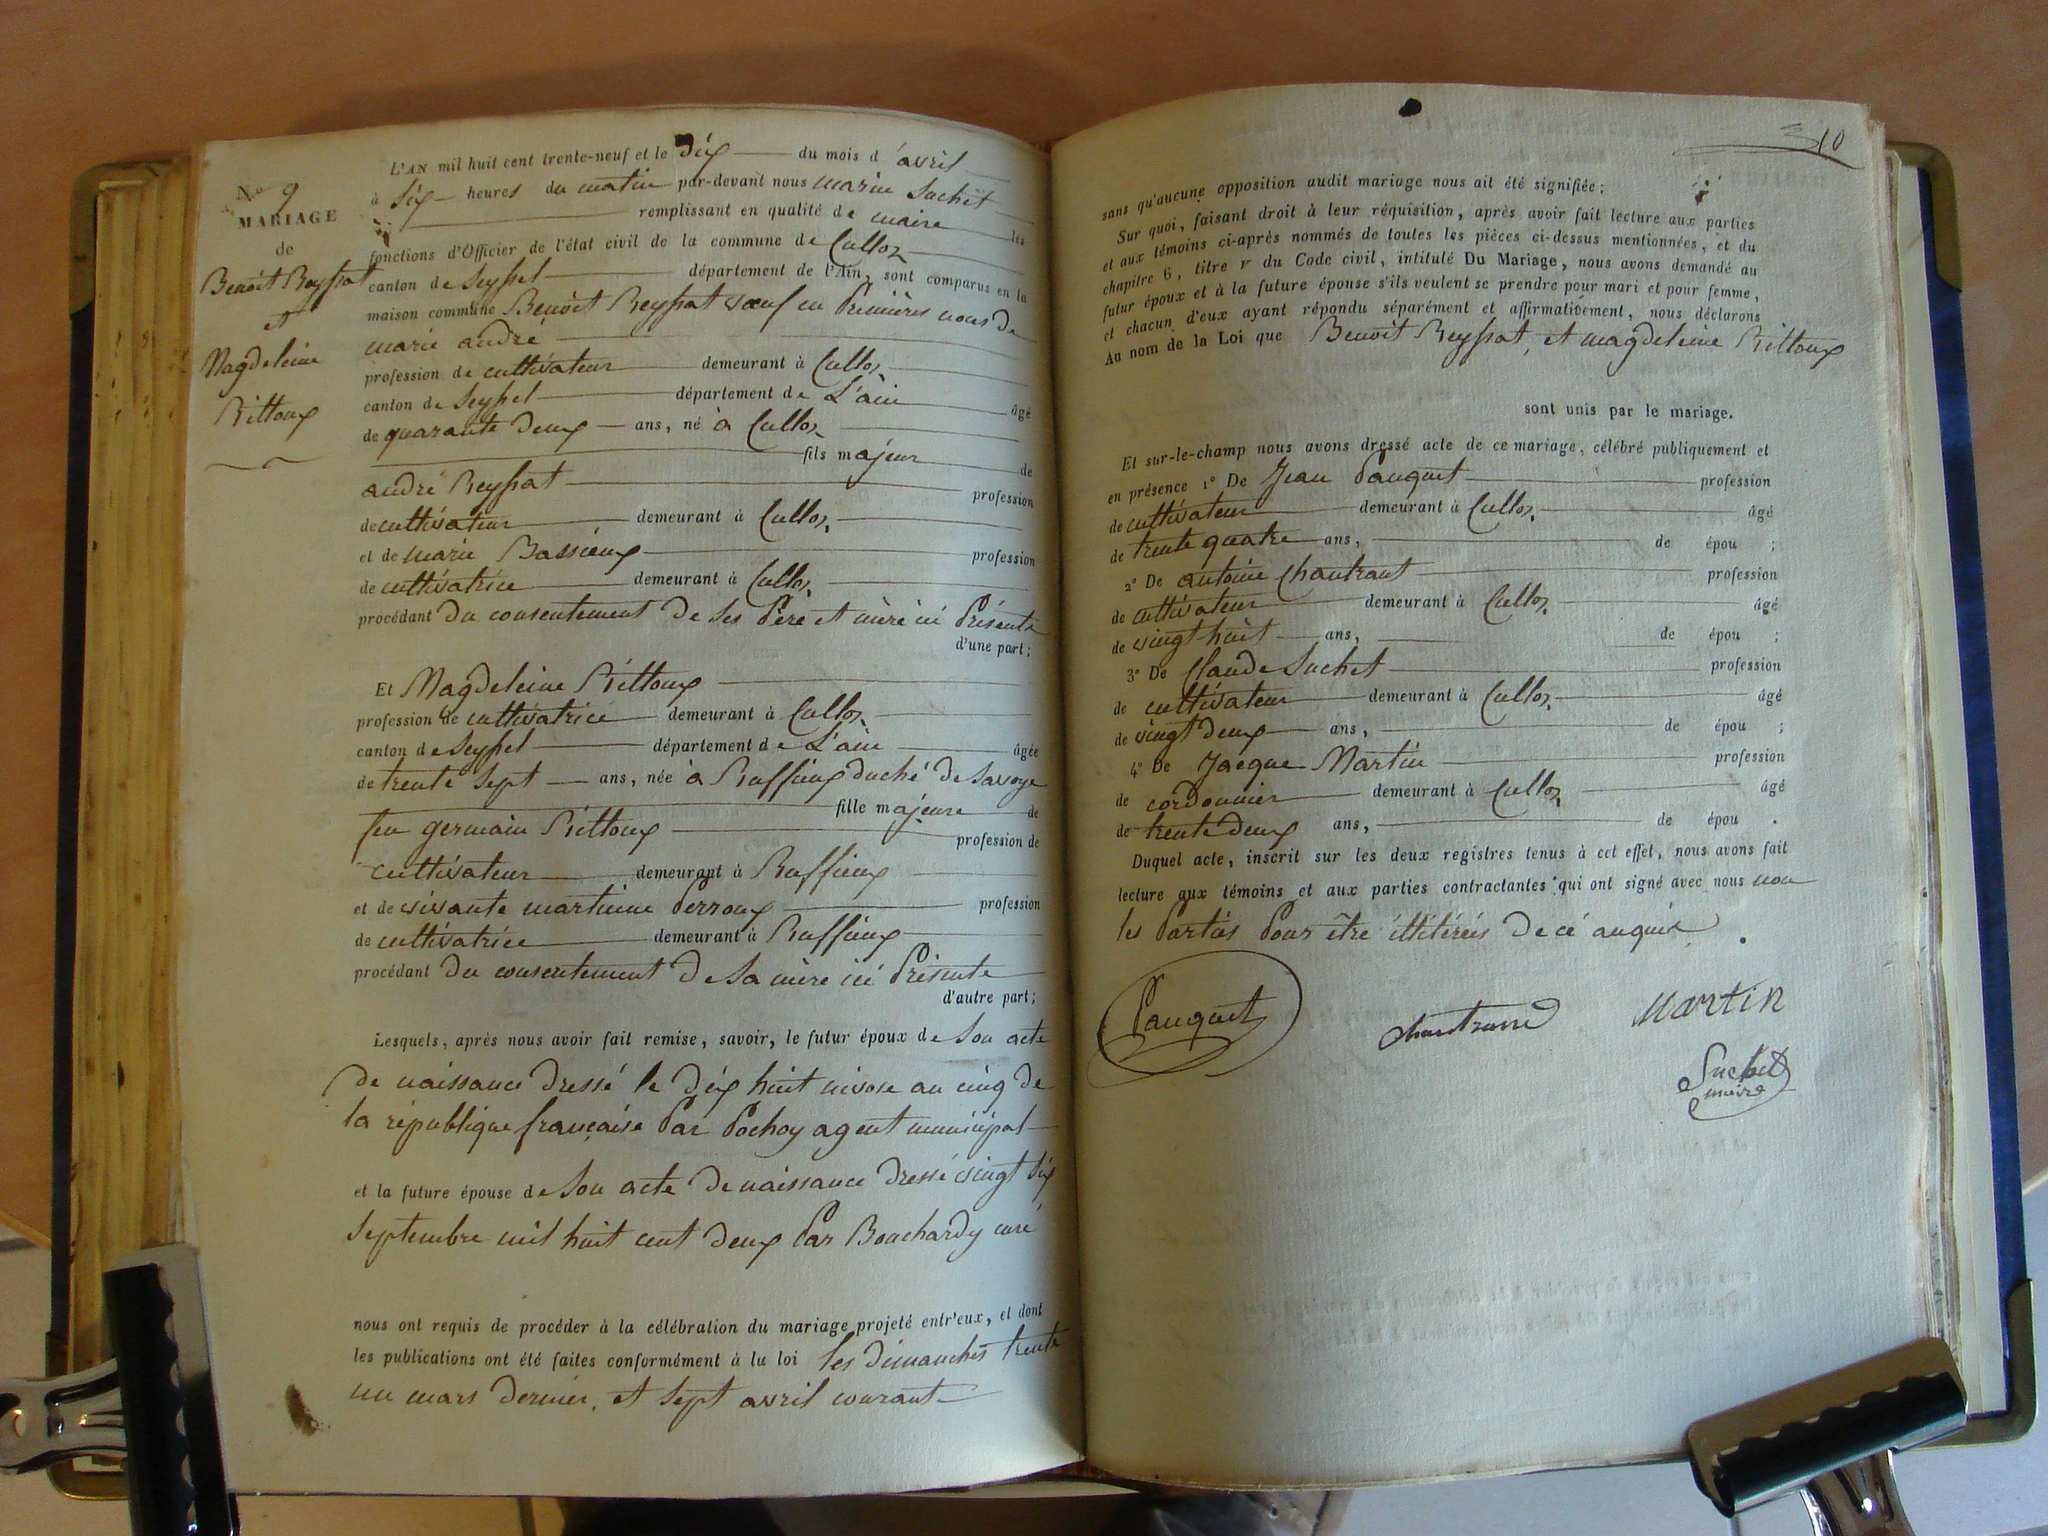 No 9
MARIAGE
de
Benoit Reyssat
et
Magdeleine
Rittoux
L'AN mil huit cent trente-neuf et le dix du mois d'avril
à six heures du matin par-devant nous marin Suchet
remplissant en qualité de maire les
fonctions d'Officier de l'état civil de la commune de Culloz
canton de Seyssel département de l'Ain, sont comparus en la
maison commune Benoit Reyssat veuf en Premières noces de
marie andré
profession de cultivateur demeurant à Culloz
canton de Seyssel département de L'ain âgé
de quarante deux ans, né à Culloz
fils majeur de
andré Reyssat profession
de cultivateur demeurant à Culloz
et de marie Bassieux profession
de cultivatrice demeurant à Culloz
procédant du consentement de ses Père et mère ici Présents
d'une part;
Et Magdeleine Rittoux
profession de cultivatrice demeurant à Culloz
canton de Seyssel département de L'ain âgée
de trente sept ans, née à Ruffieux duché de Savoye
fille majeure de
feu germain Rittoux profession de
cultivateur demeurant à Ruffieux
et de vivante martinne Perroux profession
de cultivatrice demeurant à Ruffieux
procédant du consentement de sa mère ici Présente
d'autre part;
Lesquels, après nous avoir fait remise, savoir, le futur époux de son acte
de naissance dressé le dix huit nivose an cinq de
la république française Par Pochoy agent municipal
et la future épouse de son acte de naissance dressé vingt six
septembre mil huit cent deux Par Bouchardy curé
nous ont requis de procéder à la célébration du mariage projeté entr'eux, et dont
les publications ont été faites conformément à la loi les dimanches trente
un mars dernier, et sept avril courant
10
sans qu'aucune opposition audit mariage nous ait été signifiée;
Sur quoi, faisant droit à leur réquisition, après avoir fait lecture aux parties
et aux témoins ci-après nommés de toutes les pièces ci-dessus mentionnées, et du
chapitre 6, titre V du Code civil, intitulé Du Mariage, nous avons demandé au
futur époux et à la future épouse s'ils veulent se prendre pour mari et pour femme,
et chacun d'eux ayant répondu séparément et affirmativement, nous déclarons
Au nom de la Loi que Benoit Reyssat, et magdeleine Rittoux
sont unis par le mariage.
Et sur-le-champ nous avons dressé acte de ce mariage, célébré publiquement et
en présence 1° De Jean Pauquet profession
de cultivateur demeurant à Culloz âgé
de trente quatre ans, de épou ;
2° De antoine Chautrant profession
de cultivateur demeurant à Culloz âgé
de vingt huit ans, de épou ;
3° De Claude Suchet profession
de cultivateur demeurant à Culloz âgé
de vingt deux ans, de épou ;
4° De Jacque Martin profession
de cordonnier demeurant à Culloz âgé
de trente deux ans, de épou .
Duquel acte, inscrit sur les deux registres tenus à cet effet, nous avons fait
lecture aux témoins et aux parties contractantes qui ont signé avec nous non
les Parties Pour être illitérées de ce enquis.
Pauquet
Martin
Suchet
maire